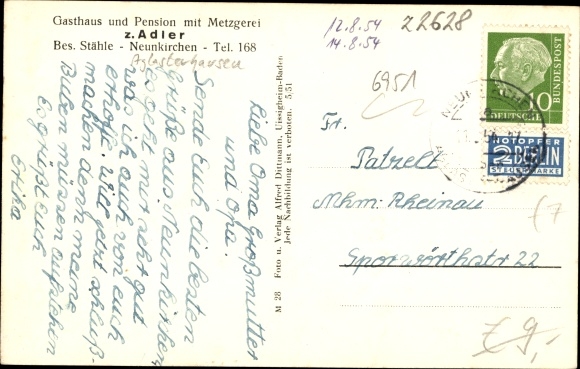 Gasthaus und Pension mit Metzgerei
z. Adler
Bes. Stähle - Neunkirchen - Tel. 168
Aglasterhausen
12.8.54
14.8.54
Z2628
6951
Liebe Oma Großmutter
und Opa.
Sende Euch die besten
Grüße aus Neunkirchen
es geht mir sehr gut
was ich auch von euch
erhoffe. Will jetzt schluß-
machen denn meine
Buben müssen aufstehen
Es grüßt euch
Erika
M 28 Foto u. Verlag Alfred Dittmann, Uissigheim-Baden
Jede Nachbildung ist verboten. 5,51
DEUTSCHE
BUNDESPOST
10
NOTOPFER
2 BERLIN
STEUERMARKE
Fr.
Patzelt
Mhm. Rheinau
Sporwörthstr 22